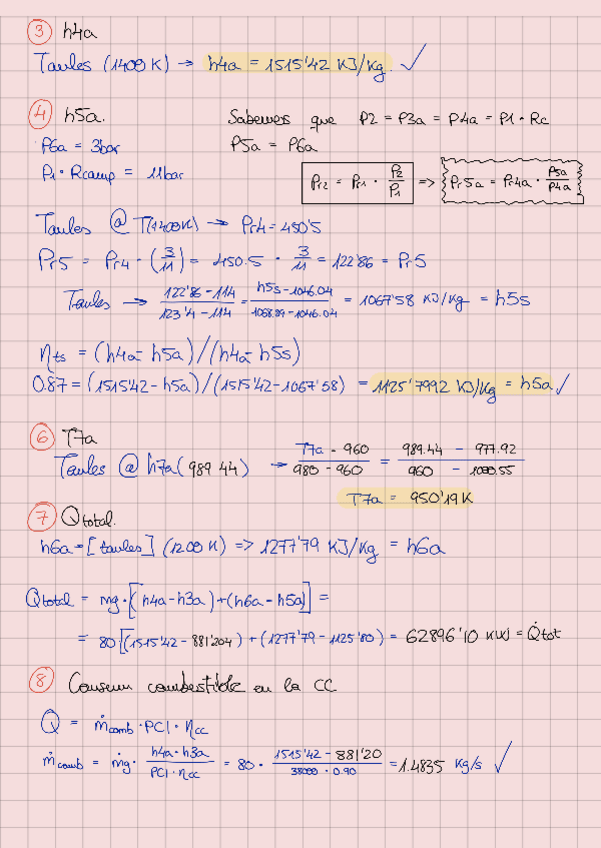 3 h4a
Taules (1400 K) → h4a = 1515'42 KJ/kg. ✓
4 h5a. Sabemos que P2 = P3a = P4a = P1 · Rc
P6a = 3bar P5a = P6a
P1 · Rcomp = 11bar Pr2 = Pr1 · P2/P1 => Pr5a = Pr4a · P5a/P4a
Taules @ T(1400K) → Pr4 = 450'5
Pr5 = Pr4 · (3/11) = 450.5 · 3/11 = 122'86 = Pr5
Taules → (122'86 - 114)/(123'4 - 114) = (h5s - 1046.04)/(1068.89 - 1046.04) = 1067'58 KJ/kg = h5s
ηts = (h4a - h5a)/(h4a - h5s)
0.87 = (1515'42 - h5a)/(1515'42 - 1067'58) = 1125'7992 KJ/Kg = h5a ✓
6 T7a
Taules @ h7a(989 44) → (T7a - 960)/(980 - 960) = (989.44 - 977.92)/(960 - 1000.55)
T7a = 950'19 K
7 Qtotal.
h6a = [taules] (1200 K) => 1277'79 KJ/Kg = h6a
Qtotal = mg · [(h4a - h3a) + (h6a - h5a)] =
= 80 [(1515'42 - 881'204) + (1277'79 - 1125'80) = 62896'10 KW = Q̇tot
8 Consum combustible en la CC
Q = ṁcomb · PCI · ηcc
ṁcomb = ṁg · (h4a - h3a)/(PCI · ηcc) = 80 · (1515'42 - 881'20)/(38000 · 0.90) = 1.4835 Kg/s ✓